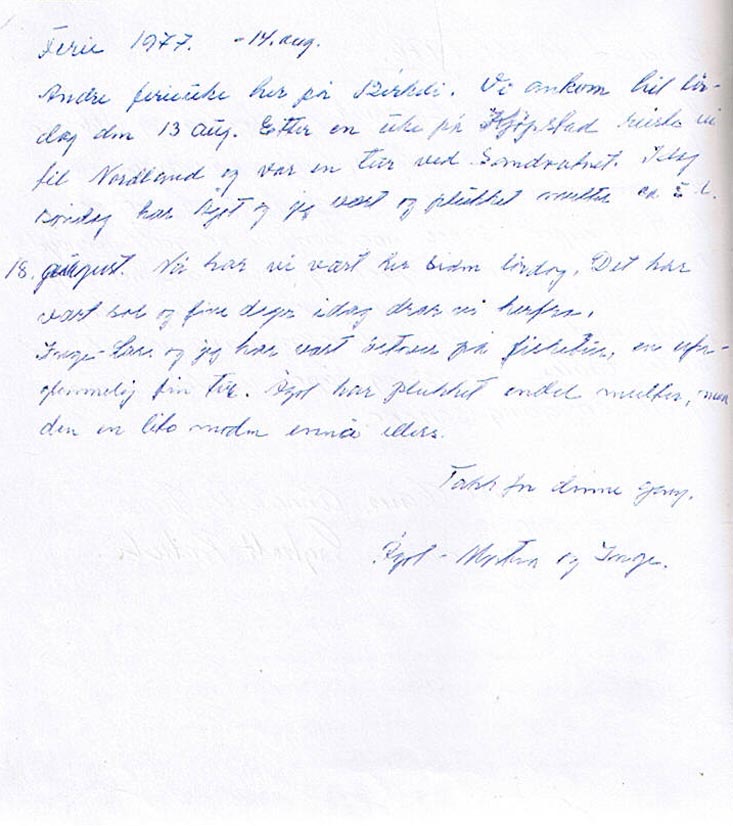 Ferie 1977. - 14. aug.
Andre ferieuke her på. Vi ankom hit lør-
dag den 13 aug. Etter en uke på Kjøpstad reiste vi
til Nordland og var en tur ved Sandvatnet. Idag
søndag har Ågot og jeg vært og plukket multer ca 5 l.
18. august. Nå har vi vært her siden lørdag. Det har
vært sol og fine dager idag drar vi herfra.
Inge- og jeg har vært på fisketur, en ufor-
glemmelig fin tur. Ågot har plukket endel multer, men
den er lite moden ennå ellers.
Takk for denne gang.
Ågot - og Inge.